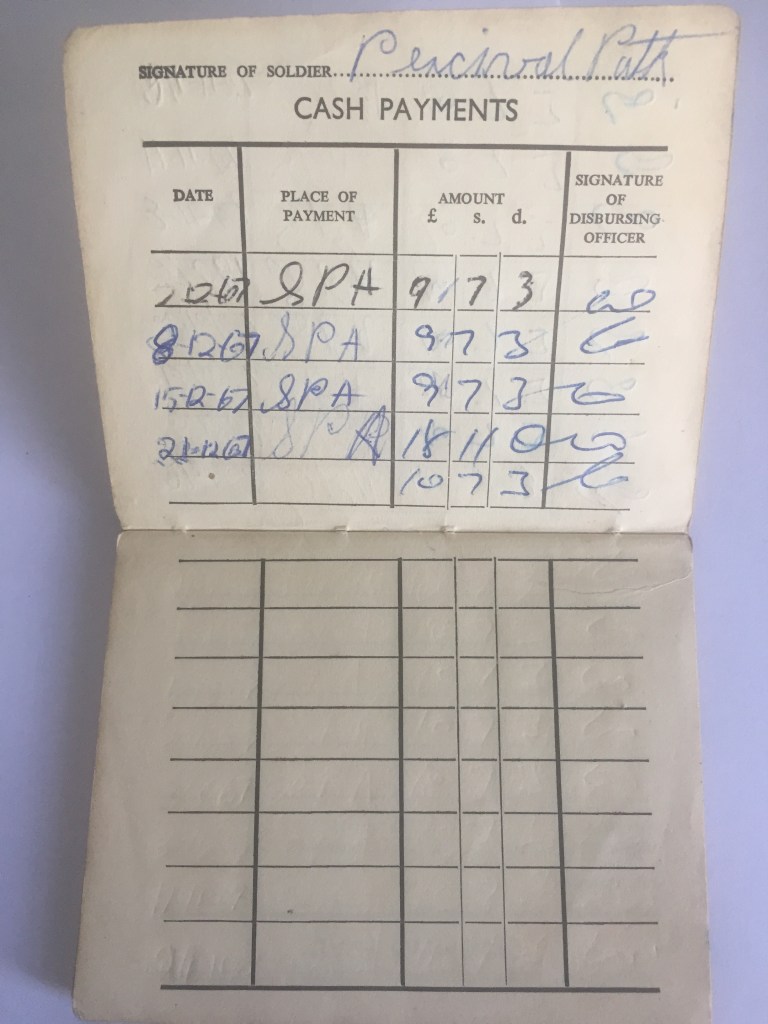 SIGNATURE OF SOLDIER Percival Path
CASH PAYMENTS
DATE PLACE OF PAYMENT AMOUNT £ s. d. SIGNATURE OF DISBURSING OFFICER
2-12-67 SPA 9 7 3
8-12-67 SPA 9 7 3
15-12-67 SPA 9 7 3
21-12-67 SPA 18 11 0
10 7 3